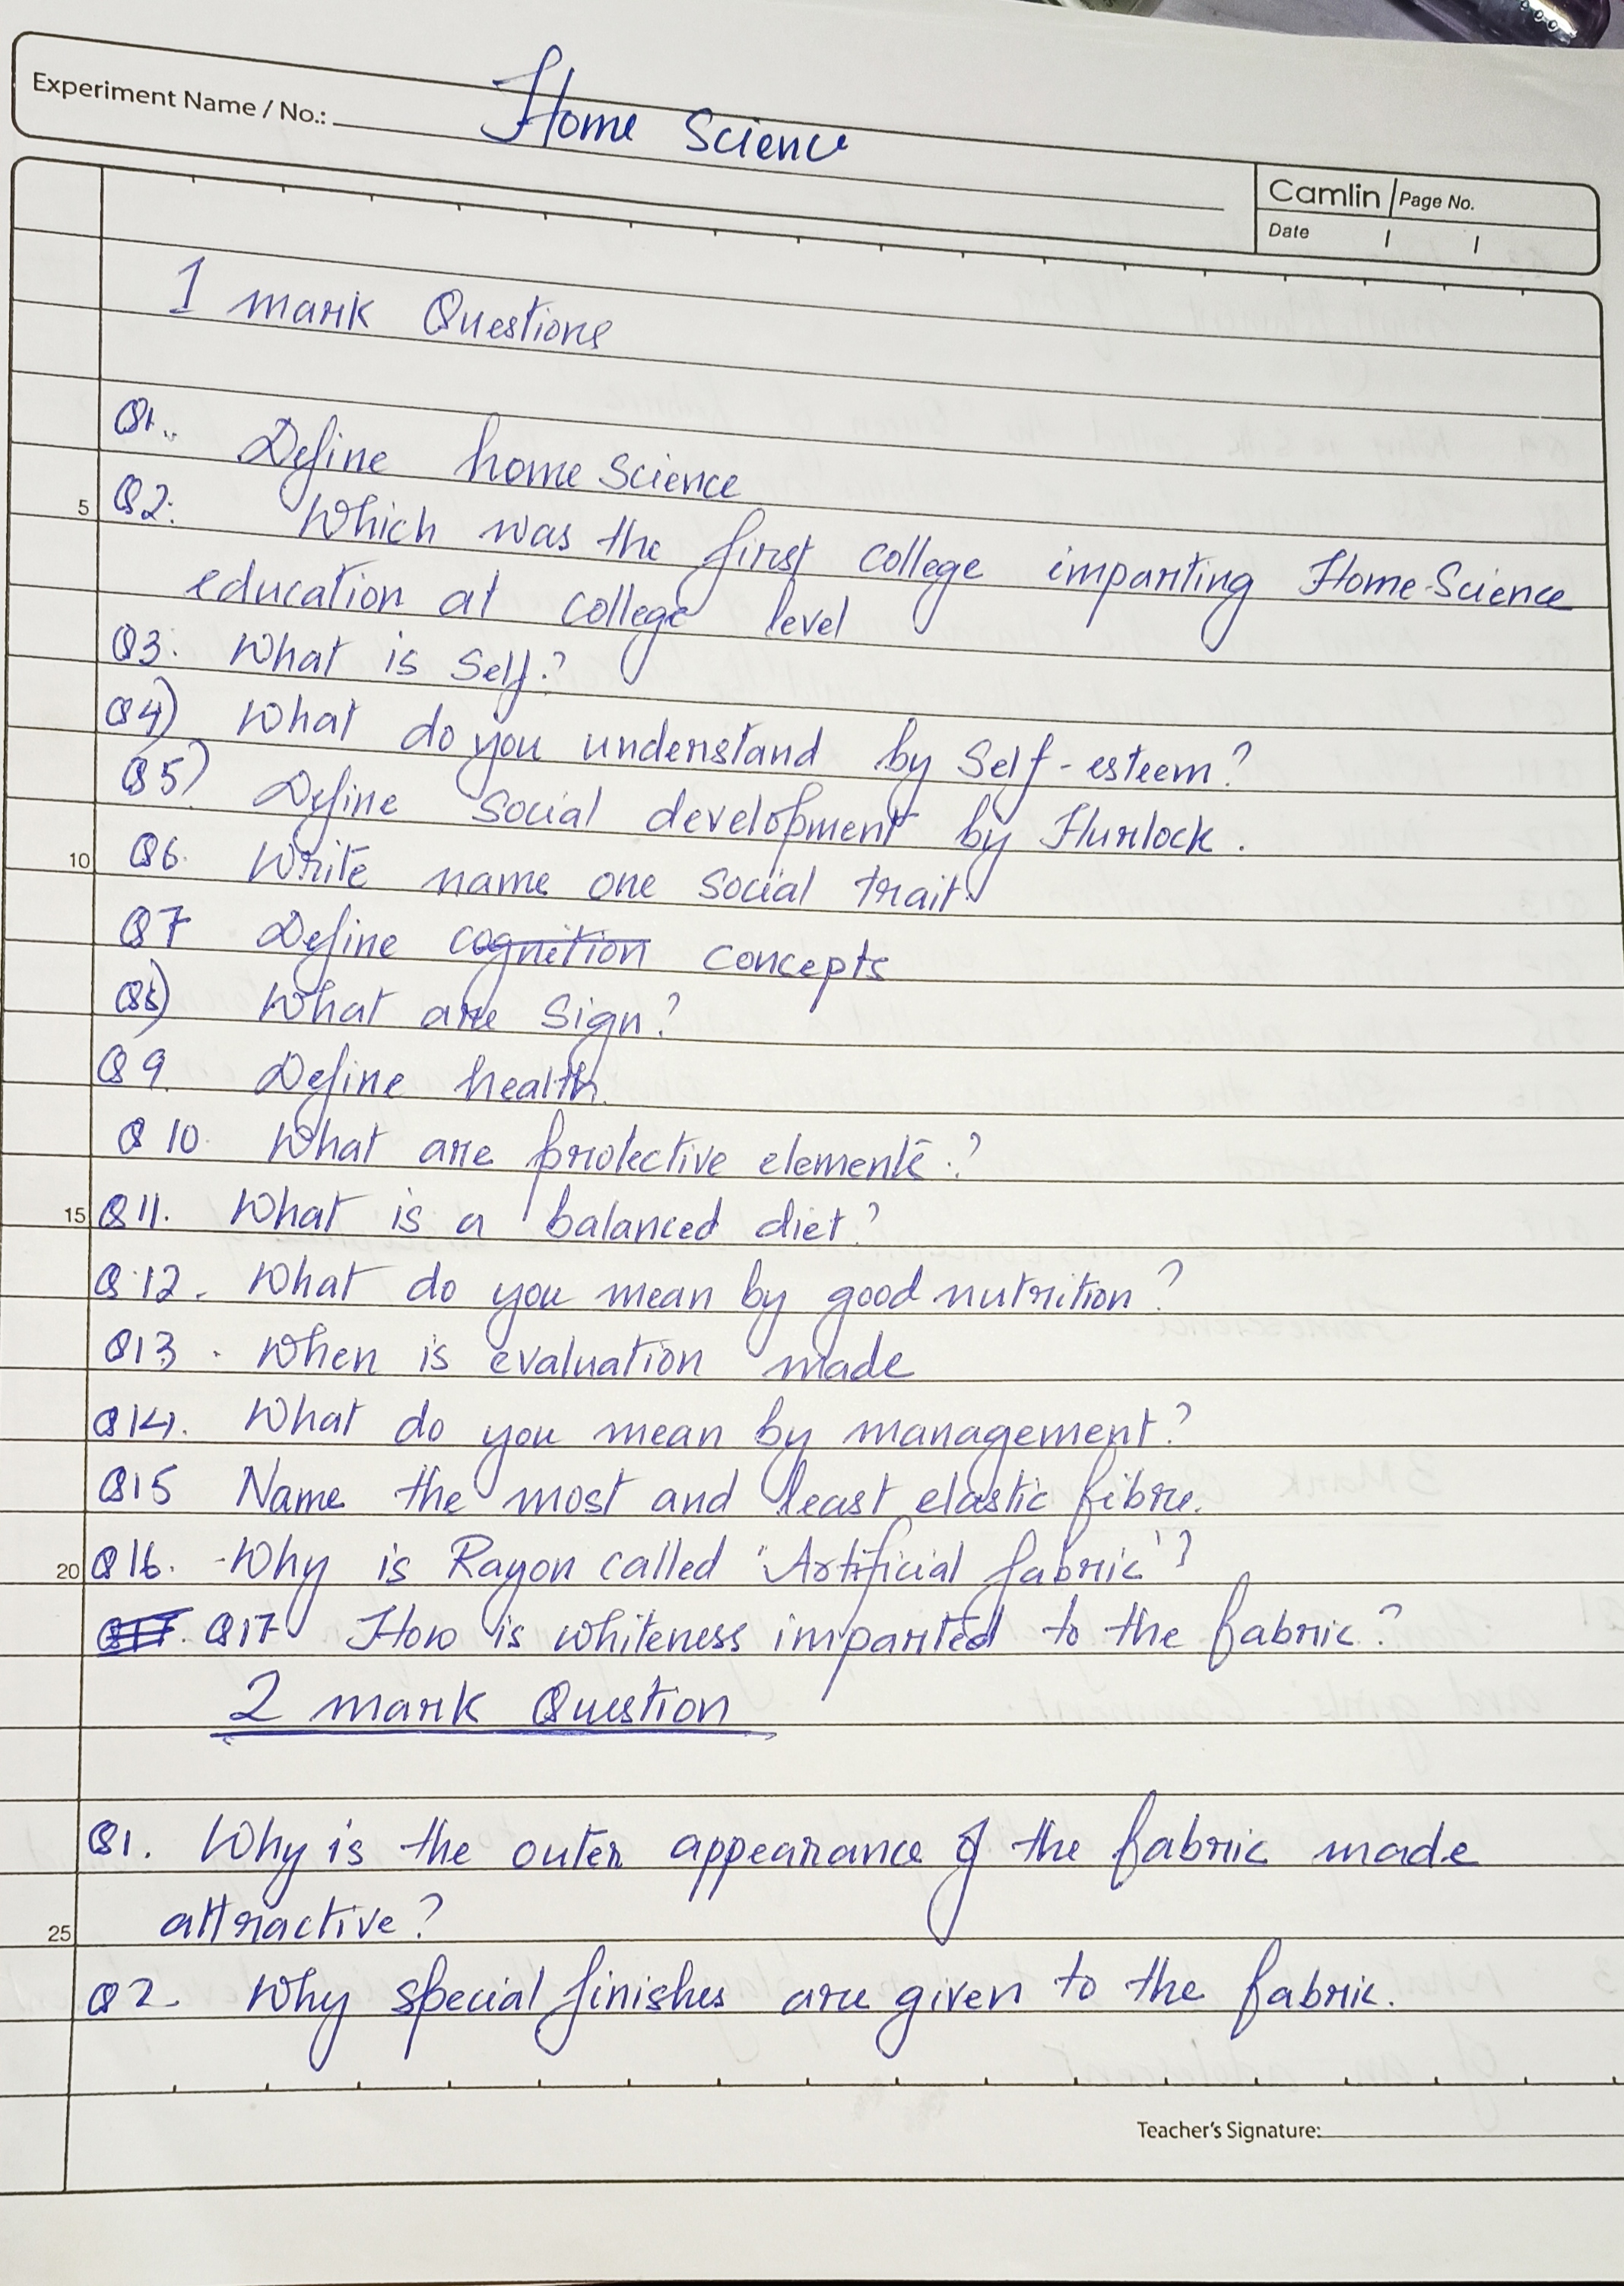 Experiment Name / No.: Home Science
Camlin Page No.
Date
1 mark Questions
Q1. Define home Science
5 Q2. Which was the first college imparting Home-Science
education at college level
Q3. What is Self?
Q4) What do you understand by Self-esteem?
Q5) Define Social development by Hurlock.
10 Q6. Write name one social trait.
Q7 Define cognition concepts
Q8) What are Sign?
Q9. Define health.
Q10. What are protective elements?
15 Q11. What is a balanced diet?
Q12. What do you mean by good nutrition?
Q13. When is evaluation made
Q14. What do you mean by management?
Q15 Name the most and least elastic fibre.
20 Q16. Why is Rayon called 'Artificial fabric'?
Q17. Q17 How is whiteness imparted to the fabric?
2 mark Question
Q1. Why is the outer appearance of the fabric made
25 attractive?
Q2. Why special finishes are given to the fabric.
Teacher's Signature: